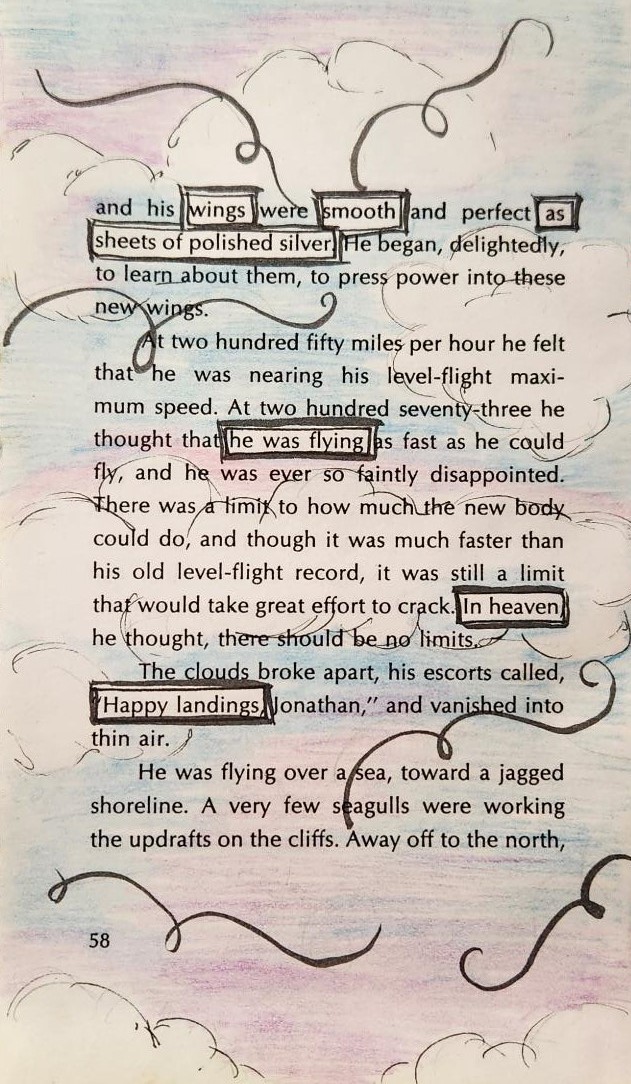 and his wings were smooth and perfect as
sheets of polished silver. He began, delightedly,
to learn about them, to press power into these
new wings.
At two hundred fifty miles per hour he felt
that he was nearing his level-flight maxi-
mum speed. At two hundred seventy-three he
thought that he was flying as fast as he could
fly, and he was ever so faintly disappointed.
There was a limit to how much the new body
could do, and though it was much faster than
his old level-flight record, it was still a limit
that would take great effort to crack. In heaven,
he thought, there should be no limits.
The clouds broke apart, his escorts called,
"Happy landings, Jonathan," and vanished into
thin air.
He was flying over a sea, toward a jagged
shoreline. A very few seagulls were working
the updrafts on the cliffs. Away off to the north,
58